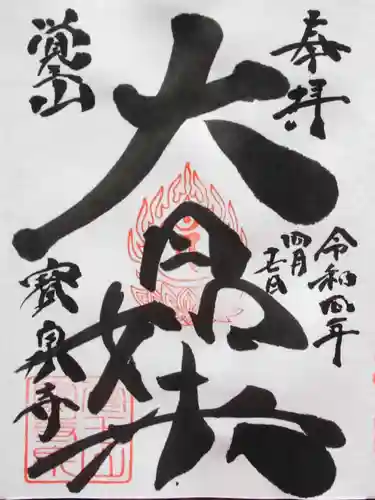 奉拝
令和四年
四月十七日
大日如来
覚王山
寳泉寺